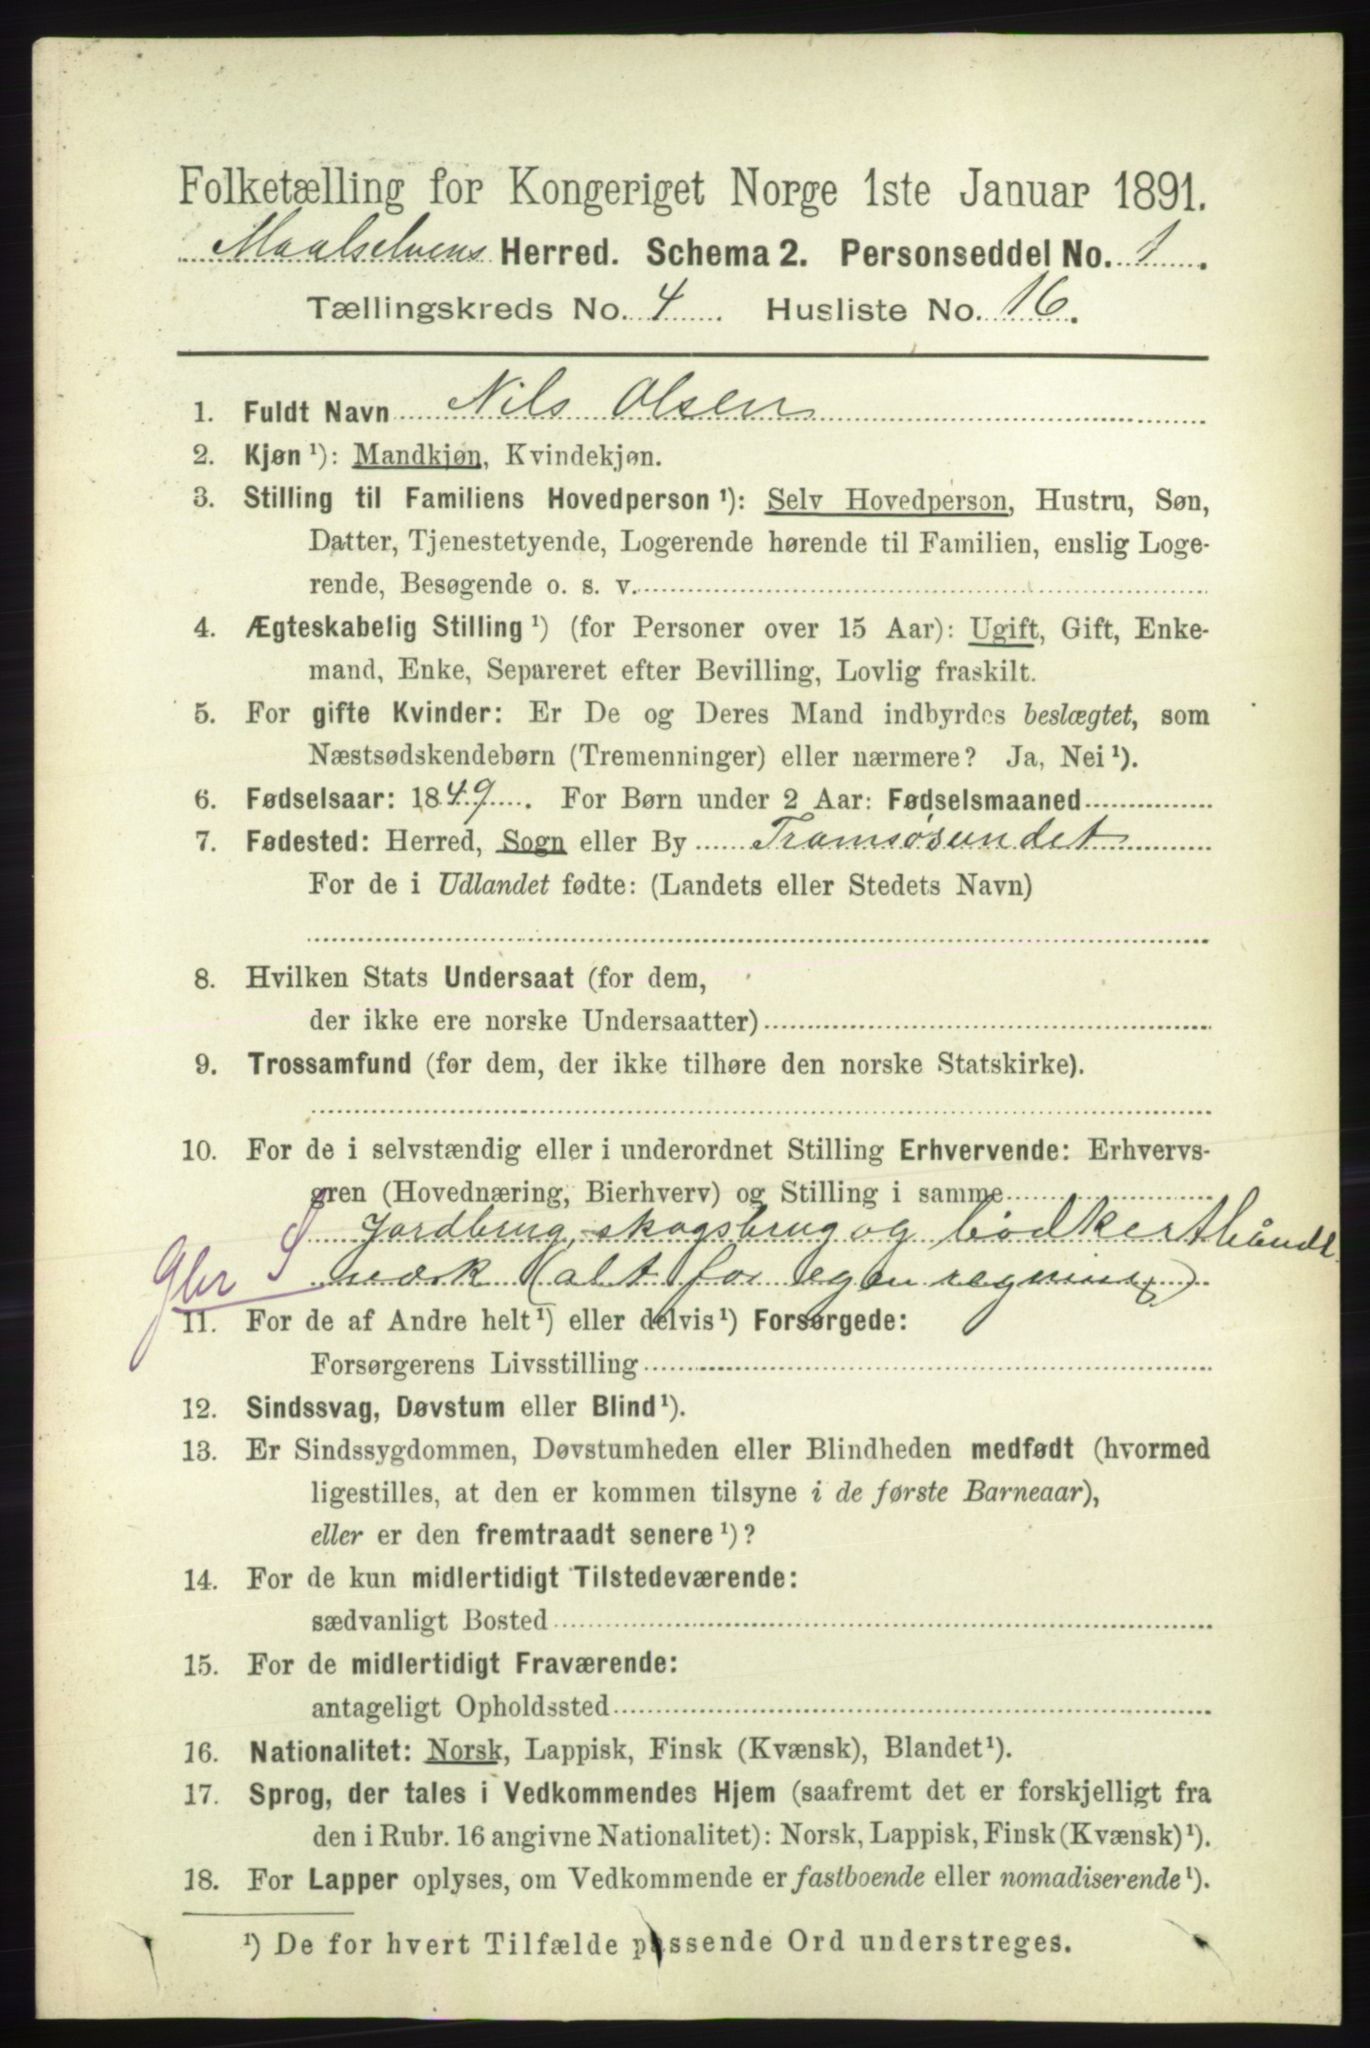 Folketælling for Kongeriget Norge 1ste Januar 1891.
Maalselvens Herred. Schema 2. Personseddel No. 1.
Tællingskreds No. 4. Husliste No. 16.
1. Fuldt Navn Nils Olsen
2. Kjøn ¹): Mandkjøn, Kvindekjøn.
3. Stilling til Familiens Hovedperson ¹): Selv Hovedperson, Hustru, Søn,
Datter, Tjenestetyende, Logerende hørende til Familien, enslig Loge-
rende, Besøgende o. s. v.
4. Ægteskabelig Stilling ¹) (for Personer over 15 Aar): Ugift, Gift, Enke-
mand, Enke, Separeret efter Bevilling, Lovlig fraskilt.
5. For gifte Kvinder: Er De og Deres Mand indbyrdes beslægtet, som
Næstsødskendebørn (Tremenninger) eller nærmere? Ja, Nei ¹).
6. Fødselsaar: 1849. For Børn under 2 Aar: Fødselsmaaned
7. Fødested: Herred, Sogn eller By Tromsøsundet
For de i Udlandet fødte: (Landets eller Stedets Navn)
8. Hvilken Stats Undersaat (for dem,
der ikke ere norske Undersaatter)
9. Trossamfund (for dem, der ikke tilhøre den norske Statskirke).
10. For de i selvstændig eller i underordnet Stilling Erhvervende: Erhvervs-
gren (Hovednæring, Bierhverv) og Stilling i samme
S Jordbrug, skogsbrug og bødkerthåndt
Gbr værk (alt for egen regning)
11. For de af Andre helt ¹) eller delvis ¹) Forsørgede:
Forsørgerens Livsstilling
12. Sindssvag, Døvstum eller Blind ¹).
13. Er Sindssygdommen, Døvstumheden eller Blindheden medfødt (hvormed
ligestilles, at den er kommen tilsyne i de første Barneaar),
eller er den fremtraadt senere ¹)?
14. For de kun midlertidigt Tilstedeværende:
sædvanligt Bosted
15. For de midlertidigt Fraværende:
antageligt Opholdssted
16. Nationalitet: Norsk, Lappisk, Finsk (Kvænsk), Blandet ¹).
17. Sprog, der tales i Vedkommendes Hjem (saafremt det er forskjelligt fra
den i Rubr. 16 angivne Nationalitet): Norsk, Lappisk, Finsk (Kvænsk) ¹).
18. For Lapper oplyses, om Vedkommende er fastboende eller nomadiserende ¹).
¹) De for hvert Tilfælde passende Ord understreges.